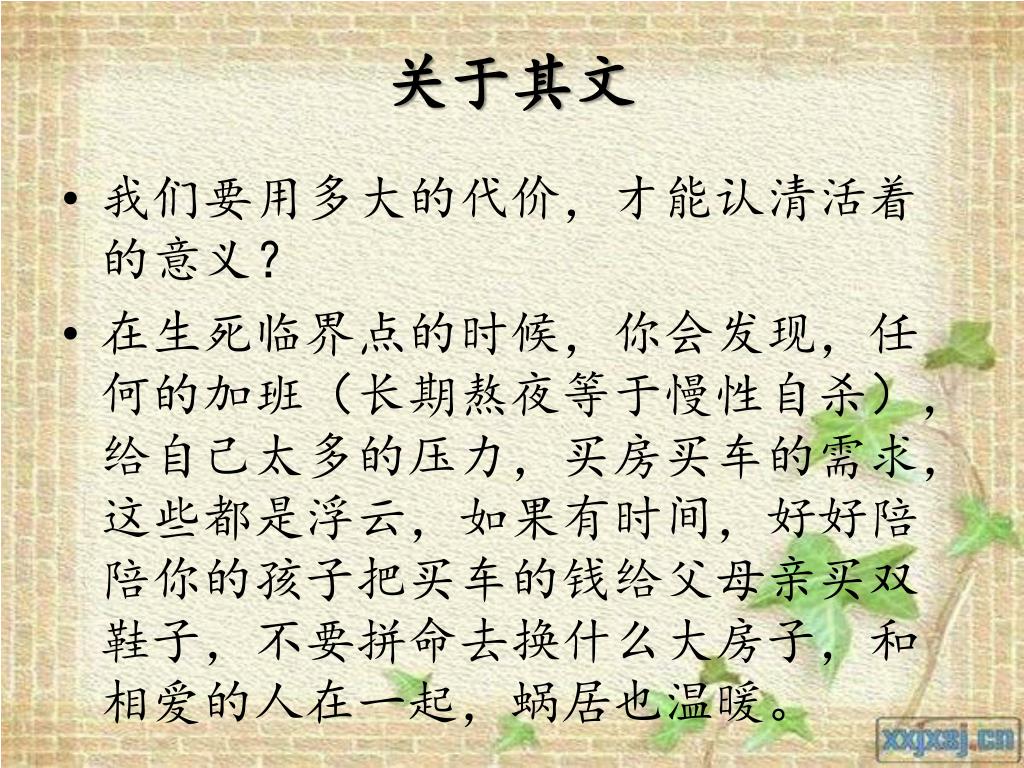 关于其文
• 我们要用多大的代价，才能认清活着
的意义？
• 在生死临界点的时候，你会发现，任
何的加班（长期熬夜等于慢性自杀），
给自己太多的压力，买房买车的需求，
这些都是浮云，如果有时间，好好陪
陪你的孩子把买车的钱给父母亲买双
鞋子，不要拼命去换什么大房子，和
相爱的人在一起，蜗居也温暖。
xxjxsj.cn